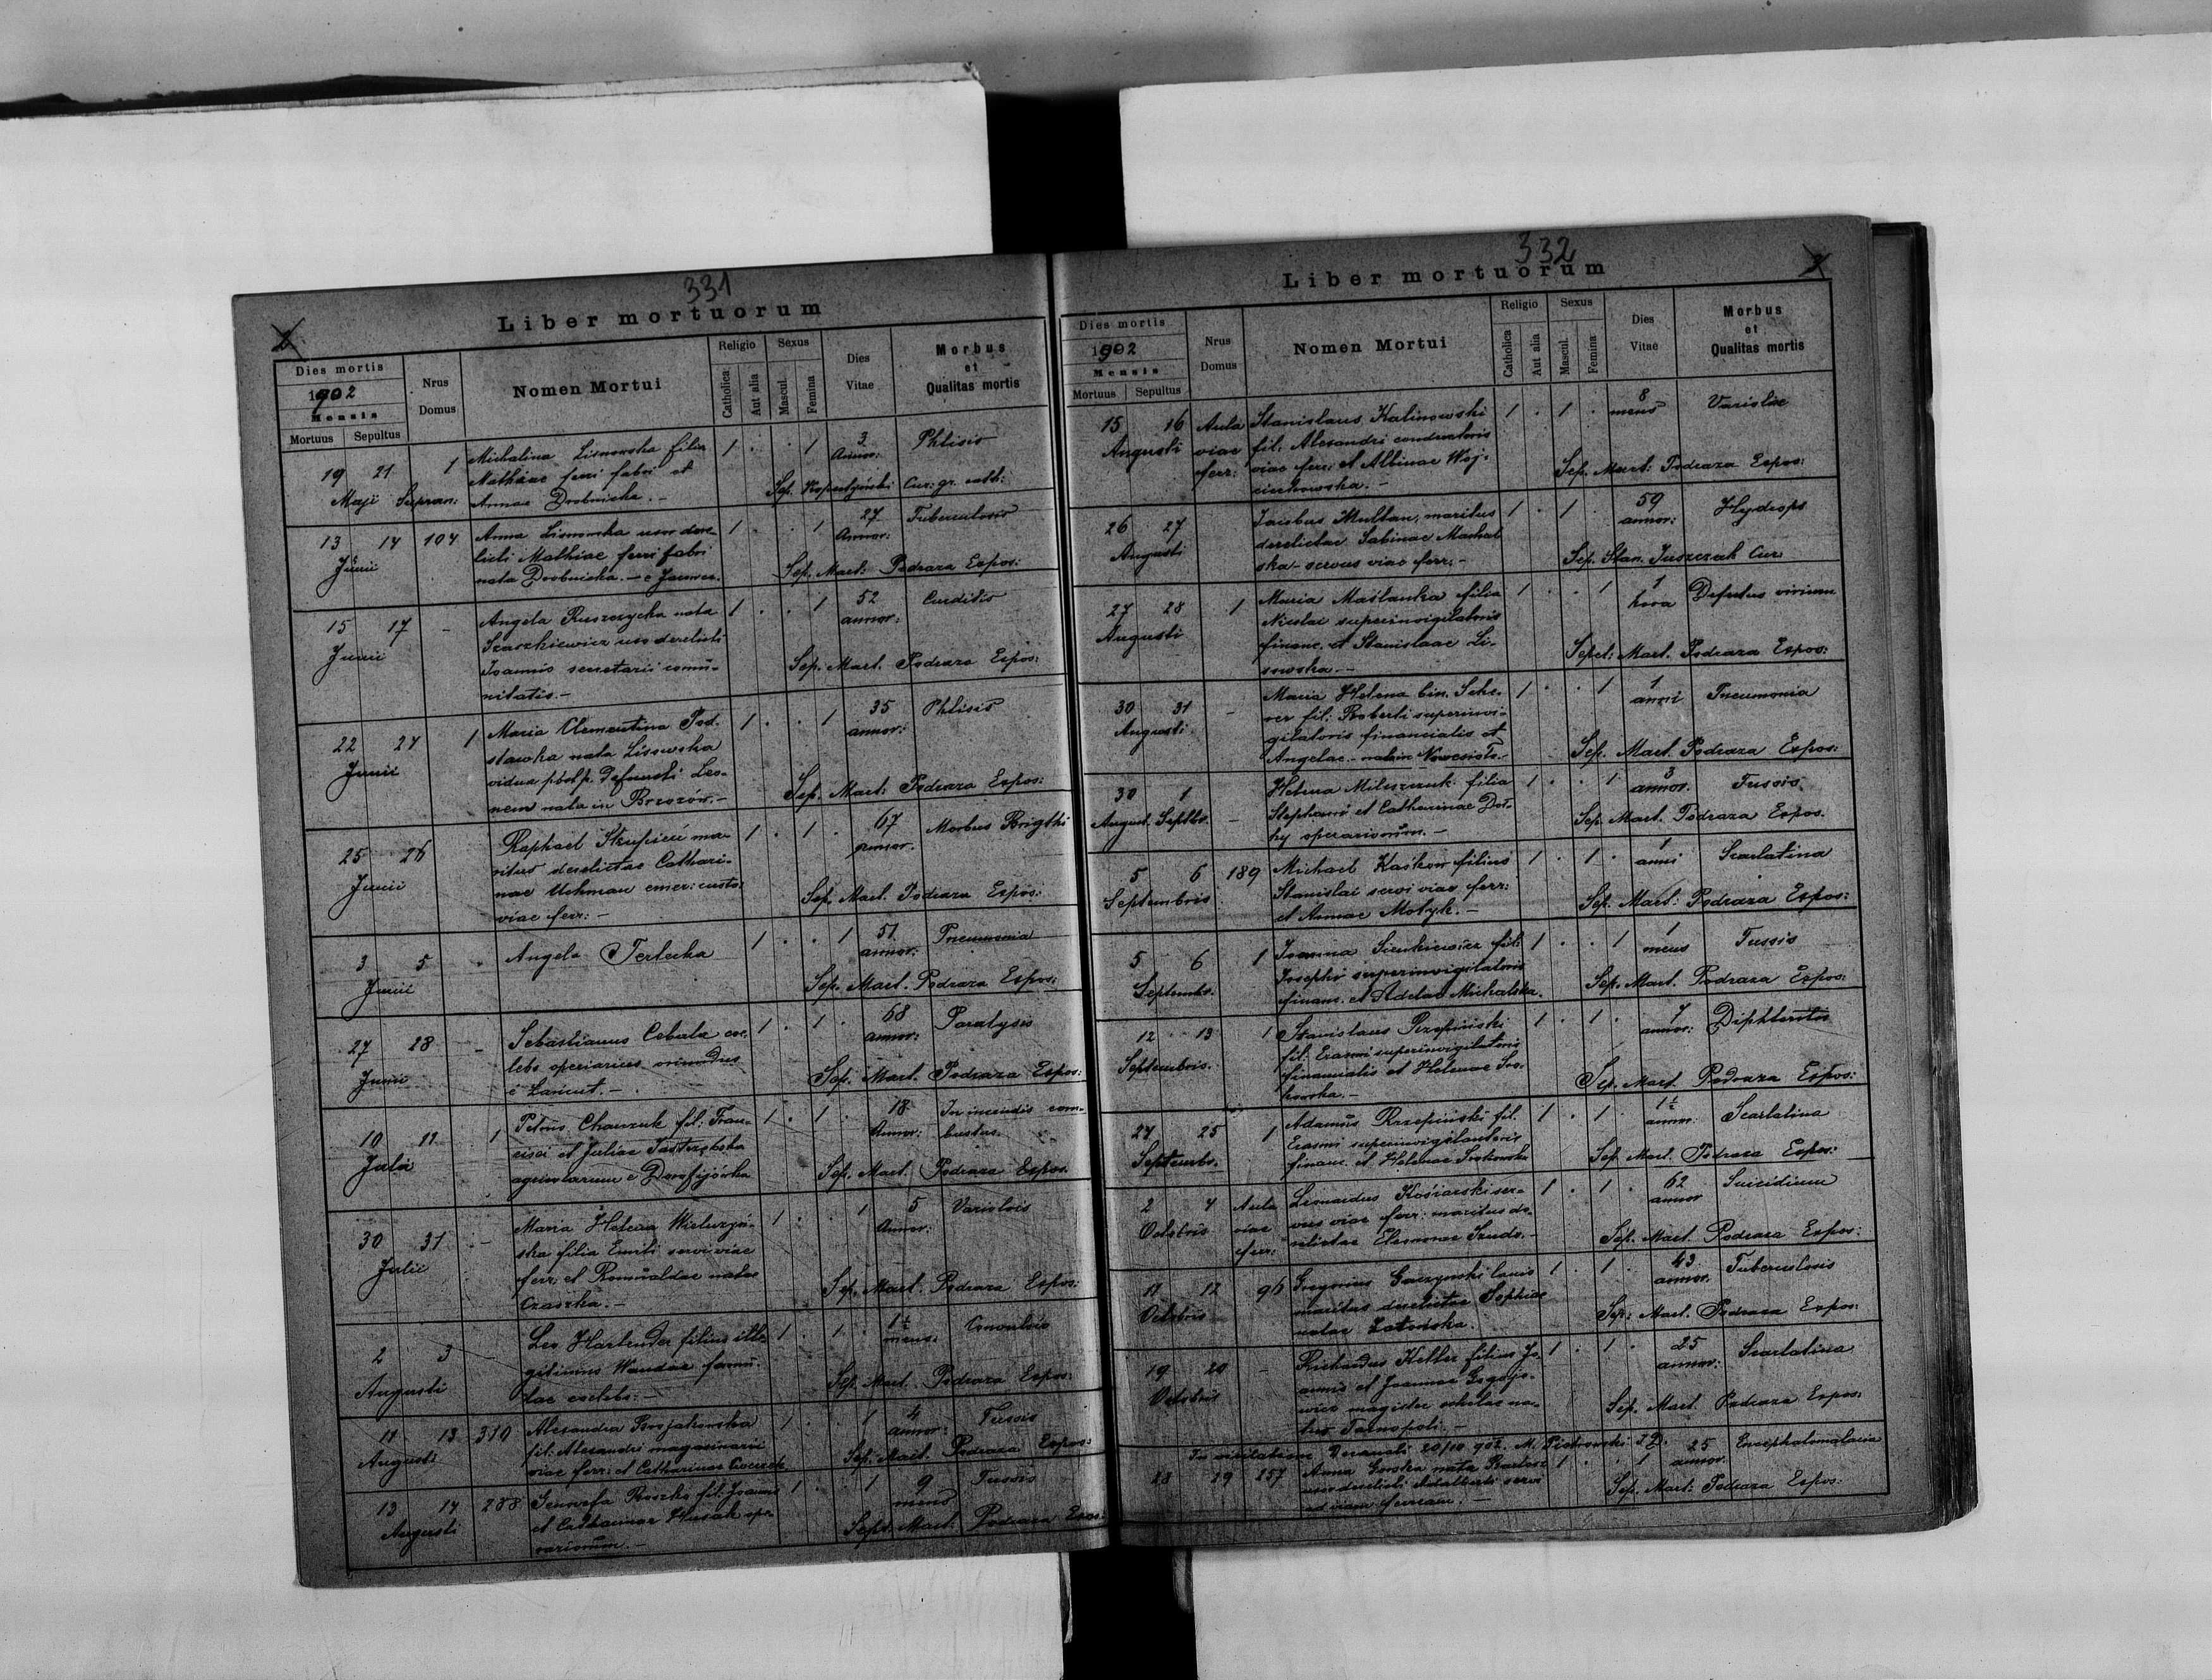 331
Liber mortuorum
2
Dies mortis
1902
Mensis
Mortuus Sepultus
Nrus Domus
Nomen Mortui
Religio
Catholica
Aut alia
Sexus
Mascul.
Femina
Dies Vitae
Morbus et Qualitas mortis
19 21 1 Michalina Lisnowska filia 1 . . 1 3 Phtisis
Maji Supran: Mathiae ferri fabri et Annor:
Annae Drobnicka. - Sep. Kopertyński Cur: gr. cath:
13 14 104 Anna Lisnowska uxor dere- 1 . . 1 27 Tuberculosis
Junii licti Mathiae ferri fabri Annor:
nata Drobnicka. - Sep. Mart: Podraza Expos:
15 17 - Angela Ruszczycka nata 1 . . 1 52
Junii uxor derelicti annor:
Joannis secretarii comu- Sep. Mart. Podraza Expos:
nitatis. -
22 24 1 Maria Clementina Pod- 1 . . 1 35 Phtisis
Junii stawka nata Lisowska annor:
vidua post p. defuncti Leo-
nem nata in Brzozów. - Sep. Mart: Podraza Expos:
25 26 Raphael ma- 1 . 1 . 67 Morbus Brigthi
Junii ritus derelictae Cathari- annor.
nae Uchman emer: custo: Sep. Mart. Podraza Expos:
viae ferr: -
3 5 Angela Terlecka 1 . . 1 51 Pneumonia
Junii annor:
Sep. Mart. Podraza Expos:
27 28 - Sebastianus Cebula coe- 1 . 1 . 68 Paralysis
Junii lebs operiarius oriundus annor:
e Łańcut. - Sep. Mart. Podraza Expos:
10 11 1 Petrus Chanzuk fil. Fran- 1 . 1 . 18 In incendio com-
Julii cisci et Juliae Jastrzębska Annor: bustus.
agricolarum e Dorofijówka Sep. Mart. Podraza Expos.
30 31 - Maria Helena 1 . . 1 5 Variolois
Julii ska filia Emili servi viae Annor:
ferr: et Romualdae natae
Czaszka. - Sep. Mart. Podraza Expos:
2 3 Leo Hartender filius ille- 1 . 1 . 1½ Convulsio
Augusti gitimus Wandae famu- mens:
lae coelebs: - Sep. Mart. Podraza Expos:
11 13 310 Alexandra 1 . . 1 4 Tussis
Augusti fil: Alexandri magasinarii annor:
viae ferr: et Catharinae Sep. Mart. Podraza Expos:
13 14 288 Genovefa Roszko fil. Joannis 1 . . 1 9 Tussis
Augusti et Catharinae Husak ope- mens
rariorum. - Sept. Mart: Podraza Expos:
332
Liber mortuorum
Dies mortis
1902
Mensis
Mortuus Sepultus
Nrus Domus
Nomen Mortui
Religio
Catholica
Aut alia
Sexus
Mascul.
Femina
Dies Vitae
Morbus et Qualitas mortis
15 16 Aula Stanislaus Kalinowski 1 . 1 . 8 Variolae
Augusti viae fil: Alexandri conductoris mens
ferr: viae ferr: et Albinae Woj-
ciechowska. - Sep. Mart: Podraza Expos:
26 27 Jacobus Multan, maritus 1 . 1 . 59 Hydrops
Augusti derelictae Sabinae Machal annor:
ska - servus viae ferr. - Sep. Stan. Juszczak Cur.
27 28 1 Maria Maślanka filia 1 . . 1 1 Defectus virium
Augusti Nicolai superinvigilatoris hora
financ. et Stanislaae Li-
sowska. - Sepel: Mart. Podraza Expos:
30 31 - Maria Helena bin. 1 . . 1 1 Pneumonia
Augusti fil: Roberti superinvi- anni
gilatoris financialis et
Angelae. - Sep. Mart. Podraza Expos:
30 1 Helena Miluszczuk filia 1 . . 1 3 Tussis
August. Septbr. - Stephani et Catharinae annor.
operariorum. - Sep. Mart. Podraza Expos.
5 6 189 Michael Kaskow filius 1 . 1 . 1 Scarlatina
Septembris Stanislai servi viae ferr: anni
et Annae Motyk. - Sep. Mart: Podraza Expos:
5 6 1 Joanna Sienkiewicz fil: 1 . . 1 1 Tussis
Septembr. Josephi superinvigilatoris mens
financ. et Adelae Michalska. Sep. Mart. Podraza Expos:
12 13 1 Stanislaus Rzepiński 1 . 1 . 7 Diphteritis
Septembris fil: Erasmi superinvigilatoris annor:
financialis et Helenae Sro-
kowska. - Sep. Mart. Podraza Expos:
24 25 1 Adamus Rzepiński fil. 1 . 1 . 1½ Scarlatina
Septembr. Erasmi superinvigilantoris annor:
financ. et Helenae Srokowska Sep. Mart. Podraza Expos:
2 4 Aula Leonardus Kosiarski ser- 1 . 1 . 62 Suicidium
Octobris viae vus viae ferr: maritus de- annor
ferr: relictae Eleonorae Szuds. - Sep. Mart. Podraza Expos:
11 12 96 Gregorius Gaczynski lanio 1 . 1 . 43 Tuberculosis
Octobris maritus derelictae Sophiae annor.
natae Zatońska. Sep: Mart. Podraza Expos:
19 20 - Richardus Keller filius Jo- 1 . 1 . 25 Scarlatina
Octobris annis et Joannae annor:
magister scholae na-
tus Tarnopoli. - Sep. Mart. Podraza Expos:
In visitatione Decanali 20/10 902. M. Piotrowski
18 19 157 Anna Gorska nata 1 . . 1 25 Encephalomalacia
uxor derelicti Adalberti servi annor.
ad viam ferream. - Sep. Mart: Podraza Expos: